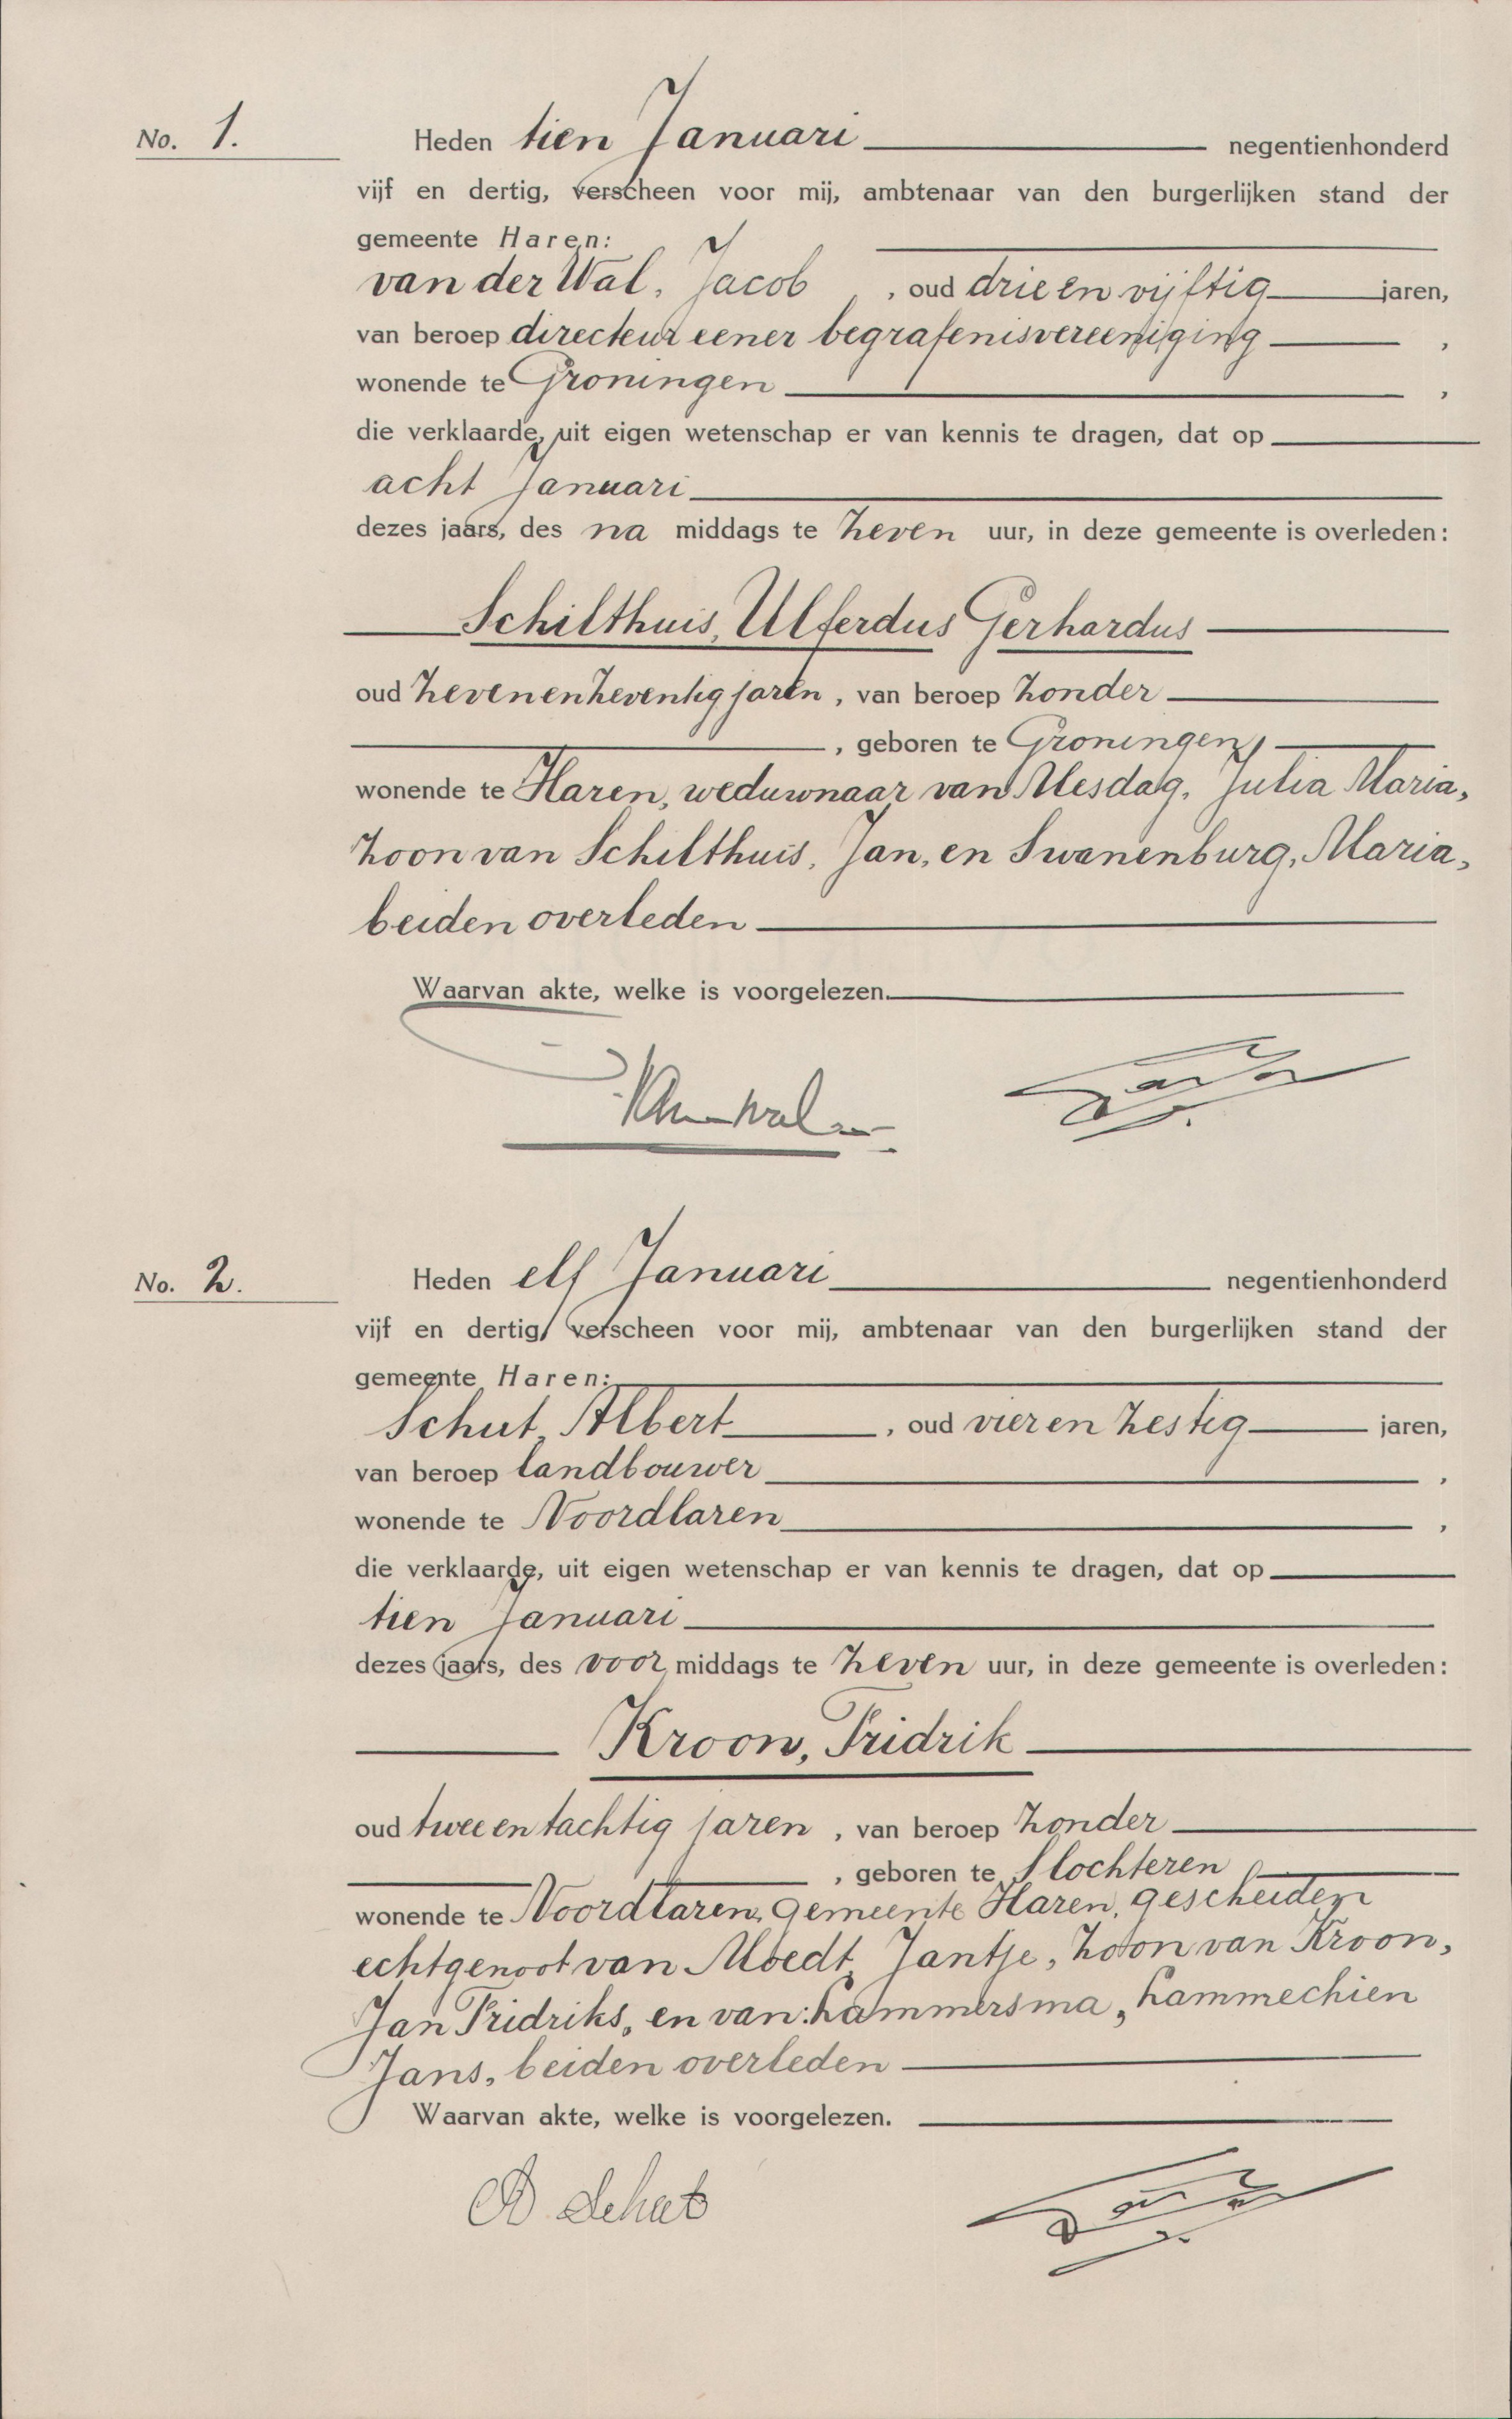 No. 1.
Heden tien Januari negentienhonderd
vijf en dertig, verscheen voor mij, ambtenaar van den burgerlijken stand der
gemeente Haren:
van der Wal, Jacob, oud drie en vijftig jaren,
van beroep directeur eener begrafenisvereeniging,
wonende te Groningen,
die verklaarde, uit eigen wetenschap er van kennis te dragen, dat op
acht Januari
dezes jaars, des na middags te zeven uur, in deze gemeente is overleden:
Schilthuis, Ulferdus Gerhardus
oud zevenenzeventig jaren, van beroep zonder
, geboren te Groningen,
wonende te Haren, weduwnaar van Mesdag, Julia Maria,
zoon van Schilthuis, Jan, en Swanenburg, Maria,
beiden overleden
Waarvan akte, welke is voorgelezen.
No. 2.
Heden elf Januari negentienhonderd
vijf en dertig, verscheen voor mij, ambtenaar van den burgerlijken stand der
gemeente Haren:
Schut, Albert, oud vier en zestig jaren,
van beroep landbouwer,
wonende te Noordlaren,
die verklaarde, uit eigen wetenschap er van kennis te dragen, dat op
tien Januari
dezes jaars, des voor middags te zeven uur, in deze gemeente is overleden:
Kroon, Fridrik
oud twee en tachtig jaren, van beroep zonder
, geboren te Slochteren,
wonende te Noordlaren, gemeente Haren, gescheiden
echtgenoot van Moedt, Jantje, zoon van Kroon,
Jan Fridriks, en van: Hammersma, Hammechien
Jans, beiden overleden
Waarvan akte, welke is voorgelezen.
A Schut